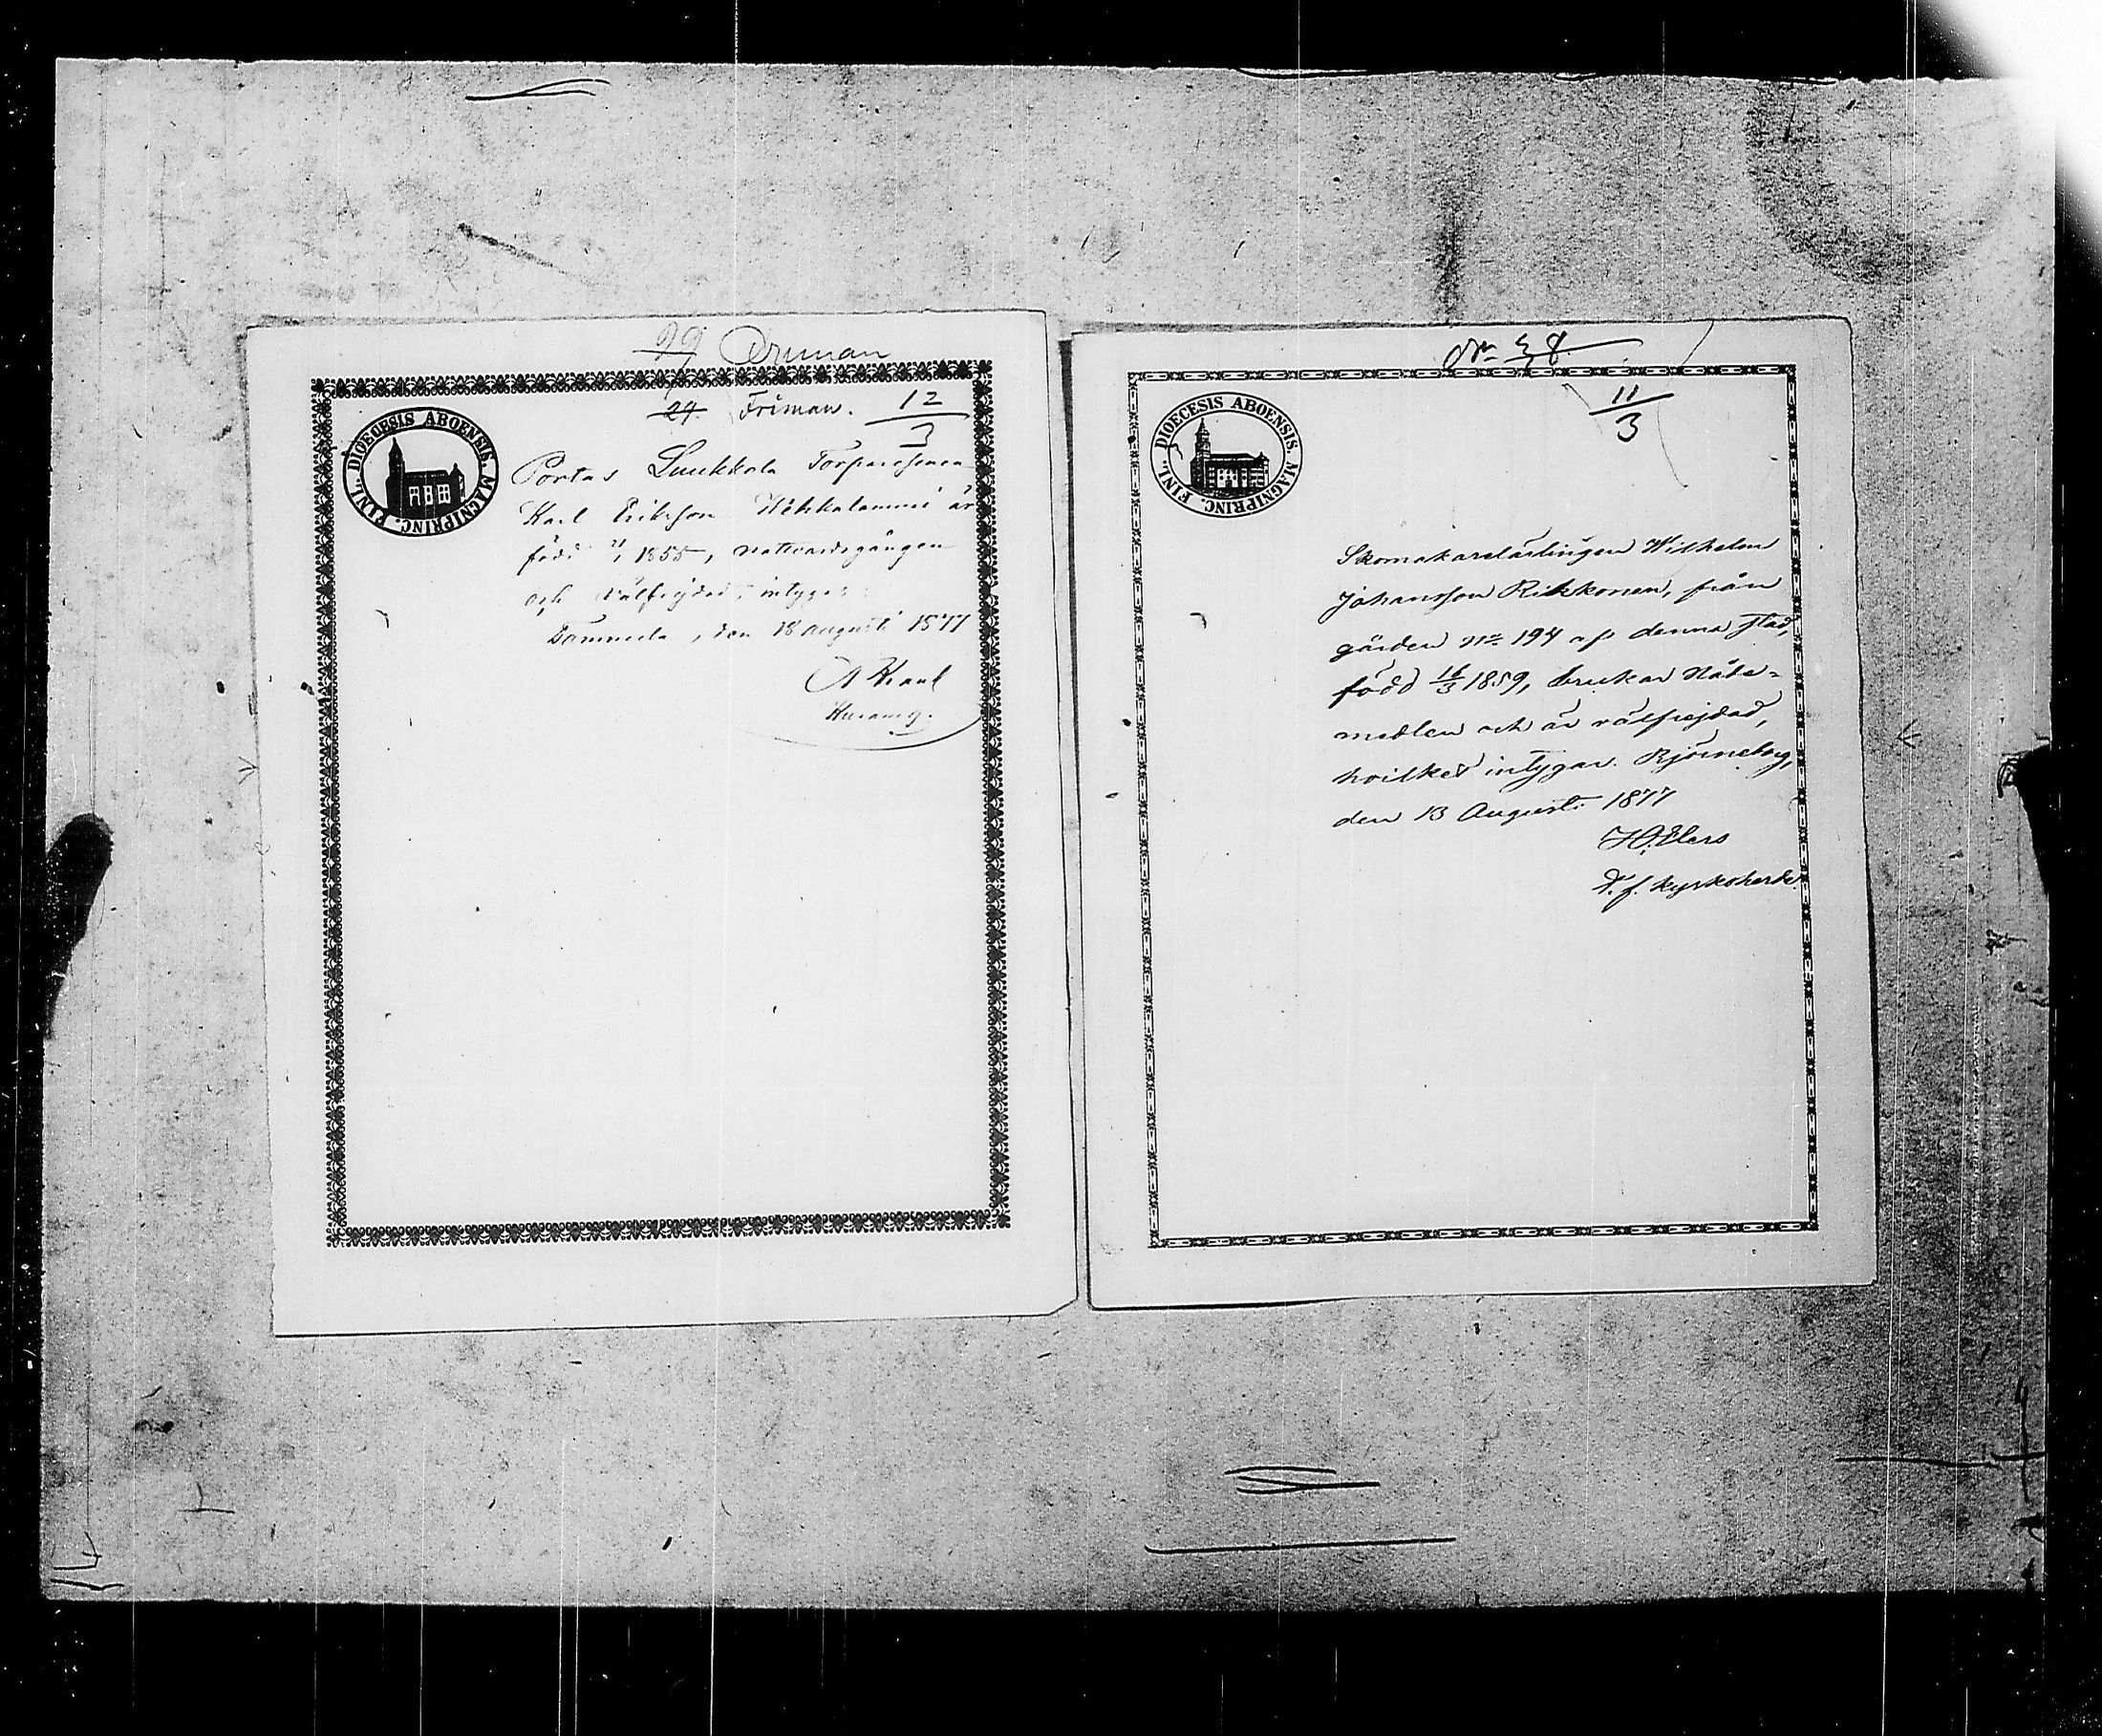 29 Druman
24. Friman. 12/3
DIOECESIS ABOENSIS. MAGNIPRINC. FINL.
Portas Luukkola Torparesonen
Karl Eriksson är
född 1855, nattvardsgången
och välfrejdad, intygar
Tammela, den 18 Augusti 1877
No 38
11/3
DIOECESIS ABOENSIS. MAGNIPRINC. FINL.
Skomakarelärlingen Wilhelm
Johansson Rikkonen, från
gården No 194 af denna stad,
född 16/3 1859, brukar Nåde=
medlen och är välfrejdad,
hvilket intygar. Björneborg,
den 13 Augusti 1877
V. f. kyrkoherde.